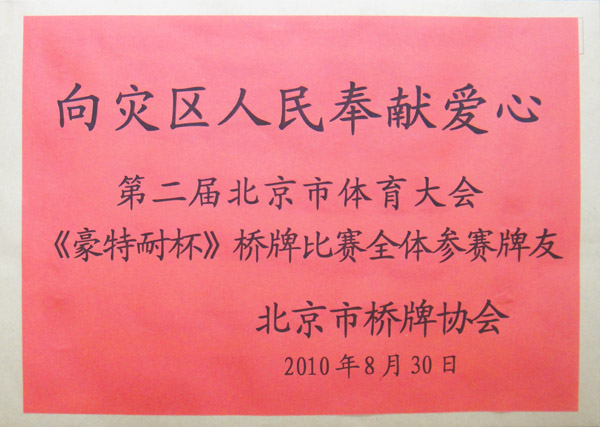 向灾区人民奉献爱心
第二届北京市体育大会
《豪特耐杯》桥牌比赛全体参赛牌友
北京市桥牌协会
2010年8月30日